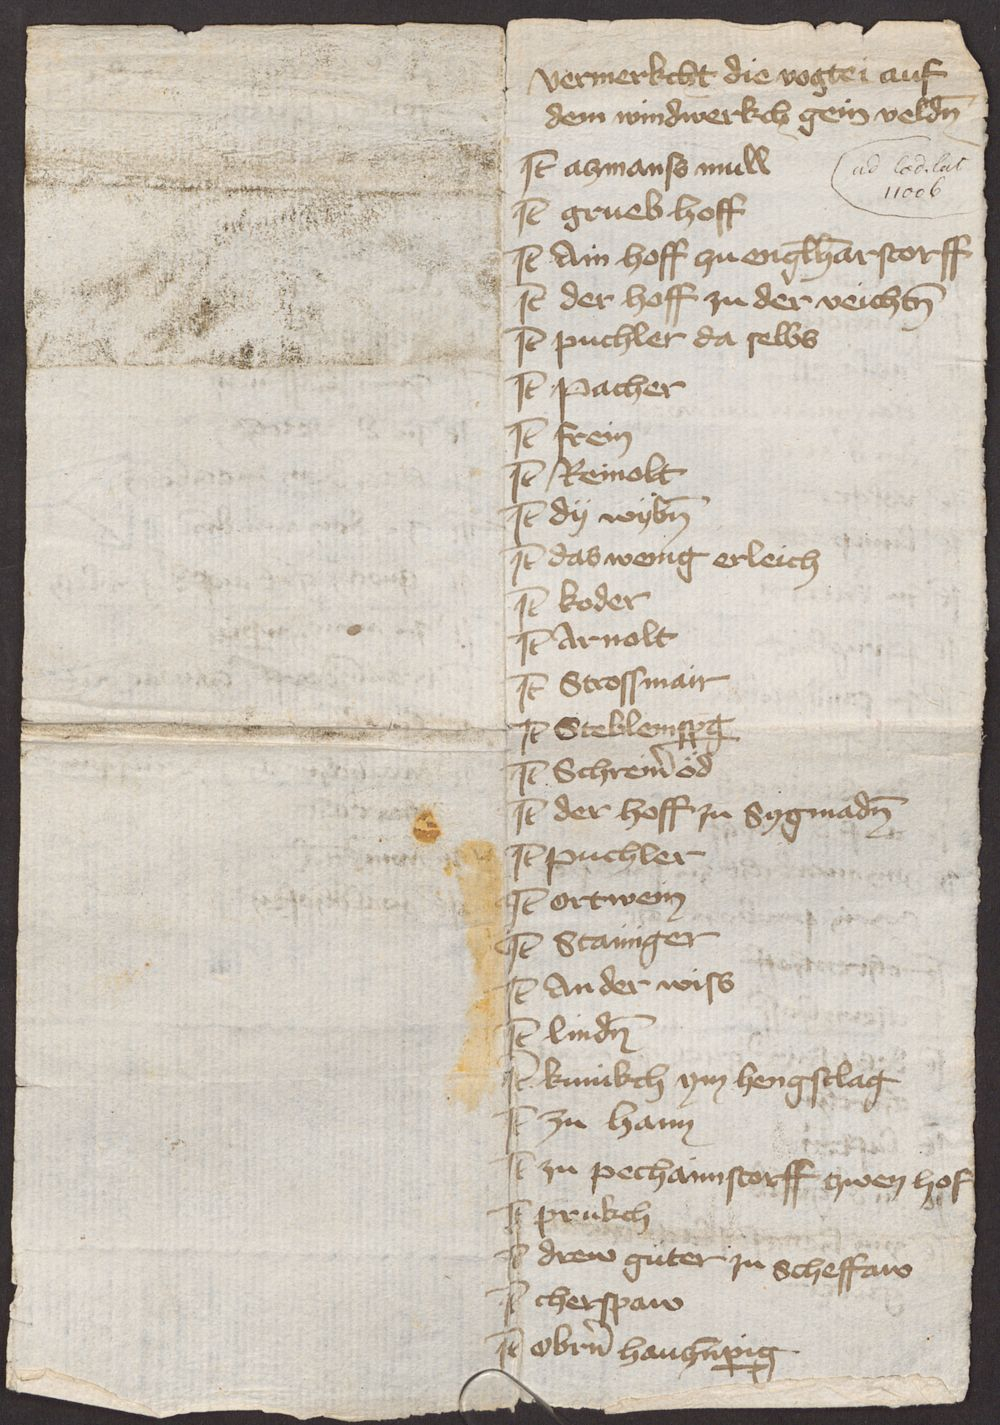 vermerkcht die vogtei auf
dem windwerkch gein veldn̄
ad cod. lat
11006
It̄ azmanss mull
It̄ grueb hoff
It̄ Ain hoff zu englharstorff
It̄ der hoff zu der veichtn̄
It̄ puchler da selbs
It̄ pacher
It̄ frein
It̄ Reinolt
It̄ dÿ wÿbn̄
It̄ das wenig erleich
It̄ koder
It̄ Arnolt
It̄ Strossmair
It̄ Steblemspg
It̄ Schrein̄ öd
It̄ der hoff zu Sygmadn̄
It̄ puchler
It̄ ortwein
It̄ Stainger
It̄ An der wiss
It̄ lindn̄
It̄ kunikch ym hengstlag
It̄ zu hann
It̄ zu pechainstorff zwen hof
It̄ prukch
It̄ drew güter zu Scheffaw
It̄ cherspaw
It̄ obrn̄ hauzn̄pig